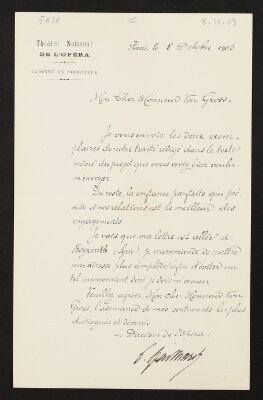 8.10.03
Théâtre National
DE L'OPÉRA
CABINET DU DIRECTEUR
Paris, le 8 Octobre 1903
Mon Cher Monsieur Von Gross,
Je vous envoie les deux exem-
plaires de notre traité rédigé dans le texte
même du projet que vous avez bien voulu
m'envoyer.
Du reste la confiance parfaite qui pré-
side à nos relations est le meilleur des
engagements.
Je vois que ma lettre est allée à
Beyrouth (Syrie), je recommande de mettre
une adresse plus complète afin d'éviter un
tel inconvénient dont je dois m'excuser
Veuillez agréer, Mon cher Monsieur Von
Gross, l'assurance de mes sentiments les plus
distingués et dévoués
Le Directeur de l'Opéra,
P. Gailhard